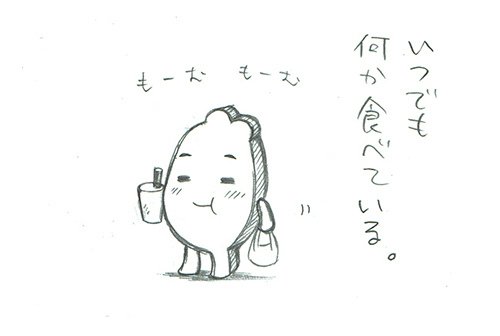 いつでも
何か食べている。
もーむ もーむ